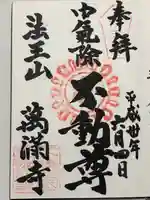 奉拝
平成卅年六月四日
中氣除
不動尊
法王山
萬満寺